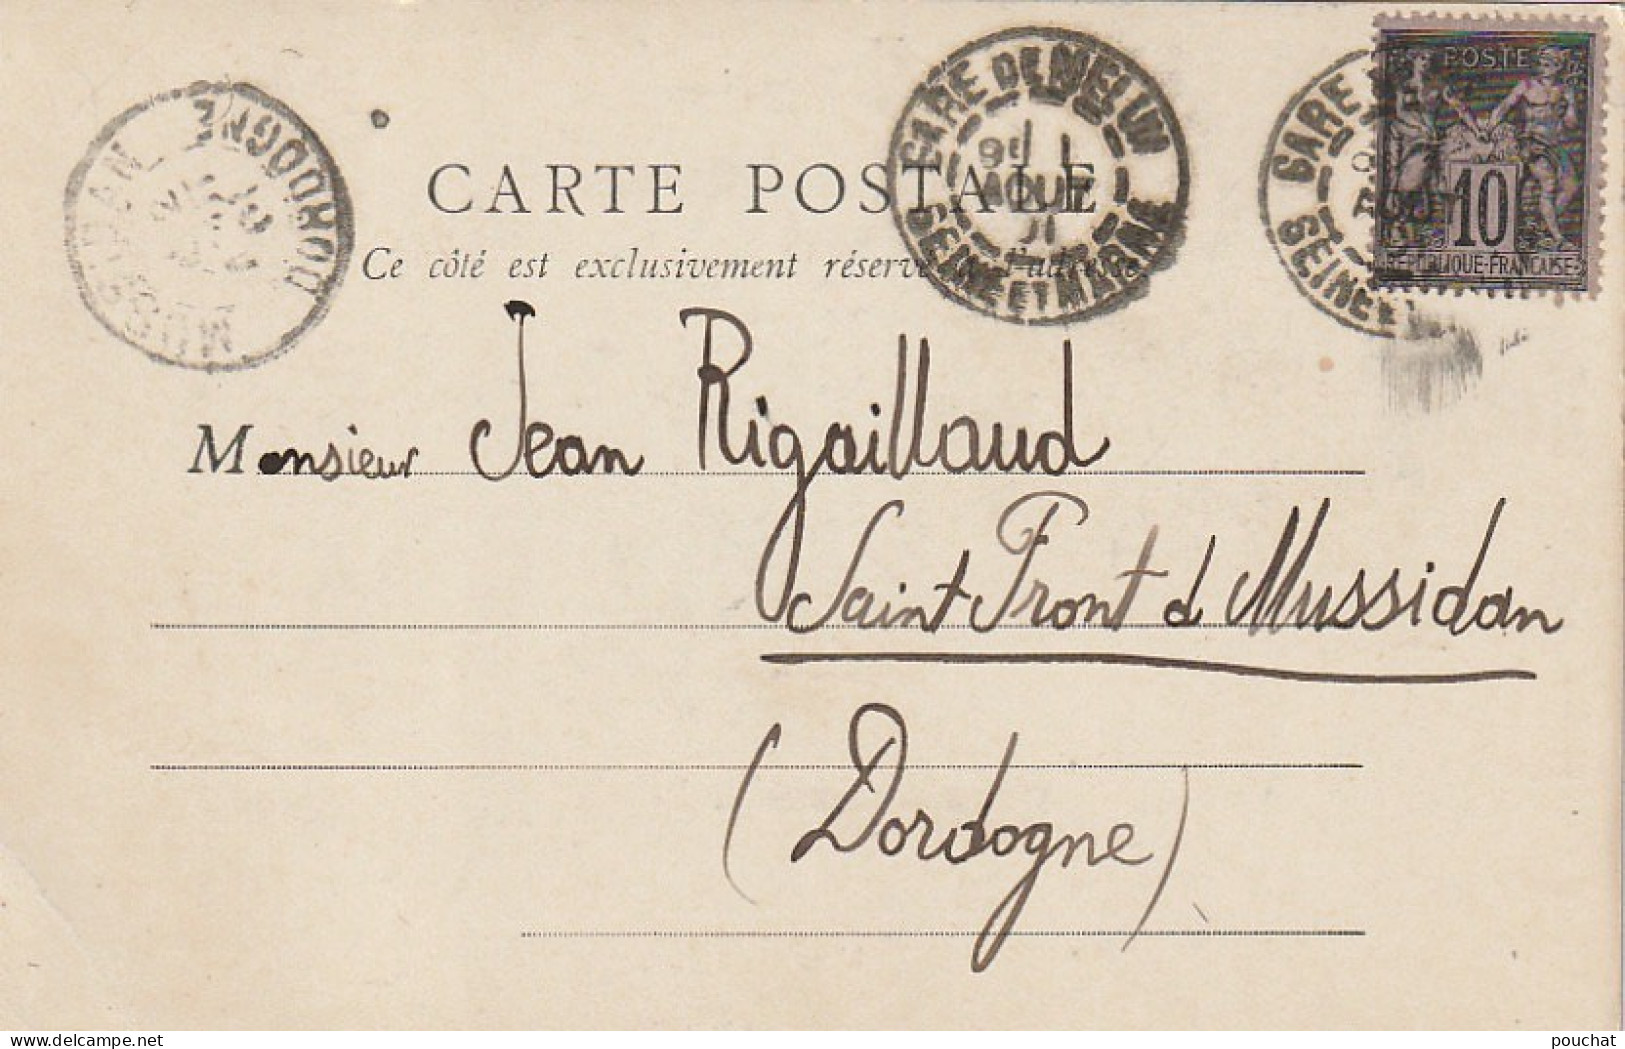 CARTE POSTALE
Ce côté est exclusivement réservé à l'adresse
GARE DE MELUN
1
AOUT
01
SEINE ET MARNE
GARE
SEINE ET
POSTE
10
REPUBLIQUE-FRANÇAISE
MUSSIDAN
DORDOGNE
01
Monsieur Jean Rigaillaud
Saint Front d Mussidan
(Dordogne)
pouchat